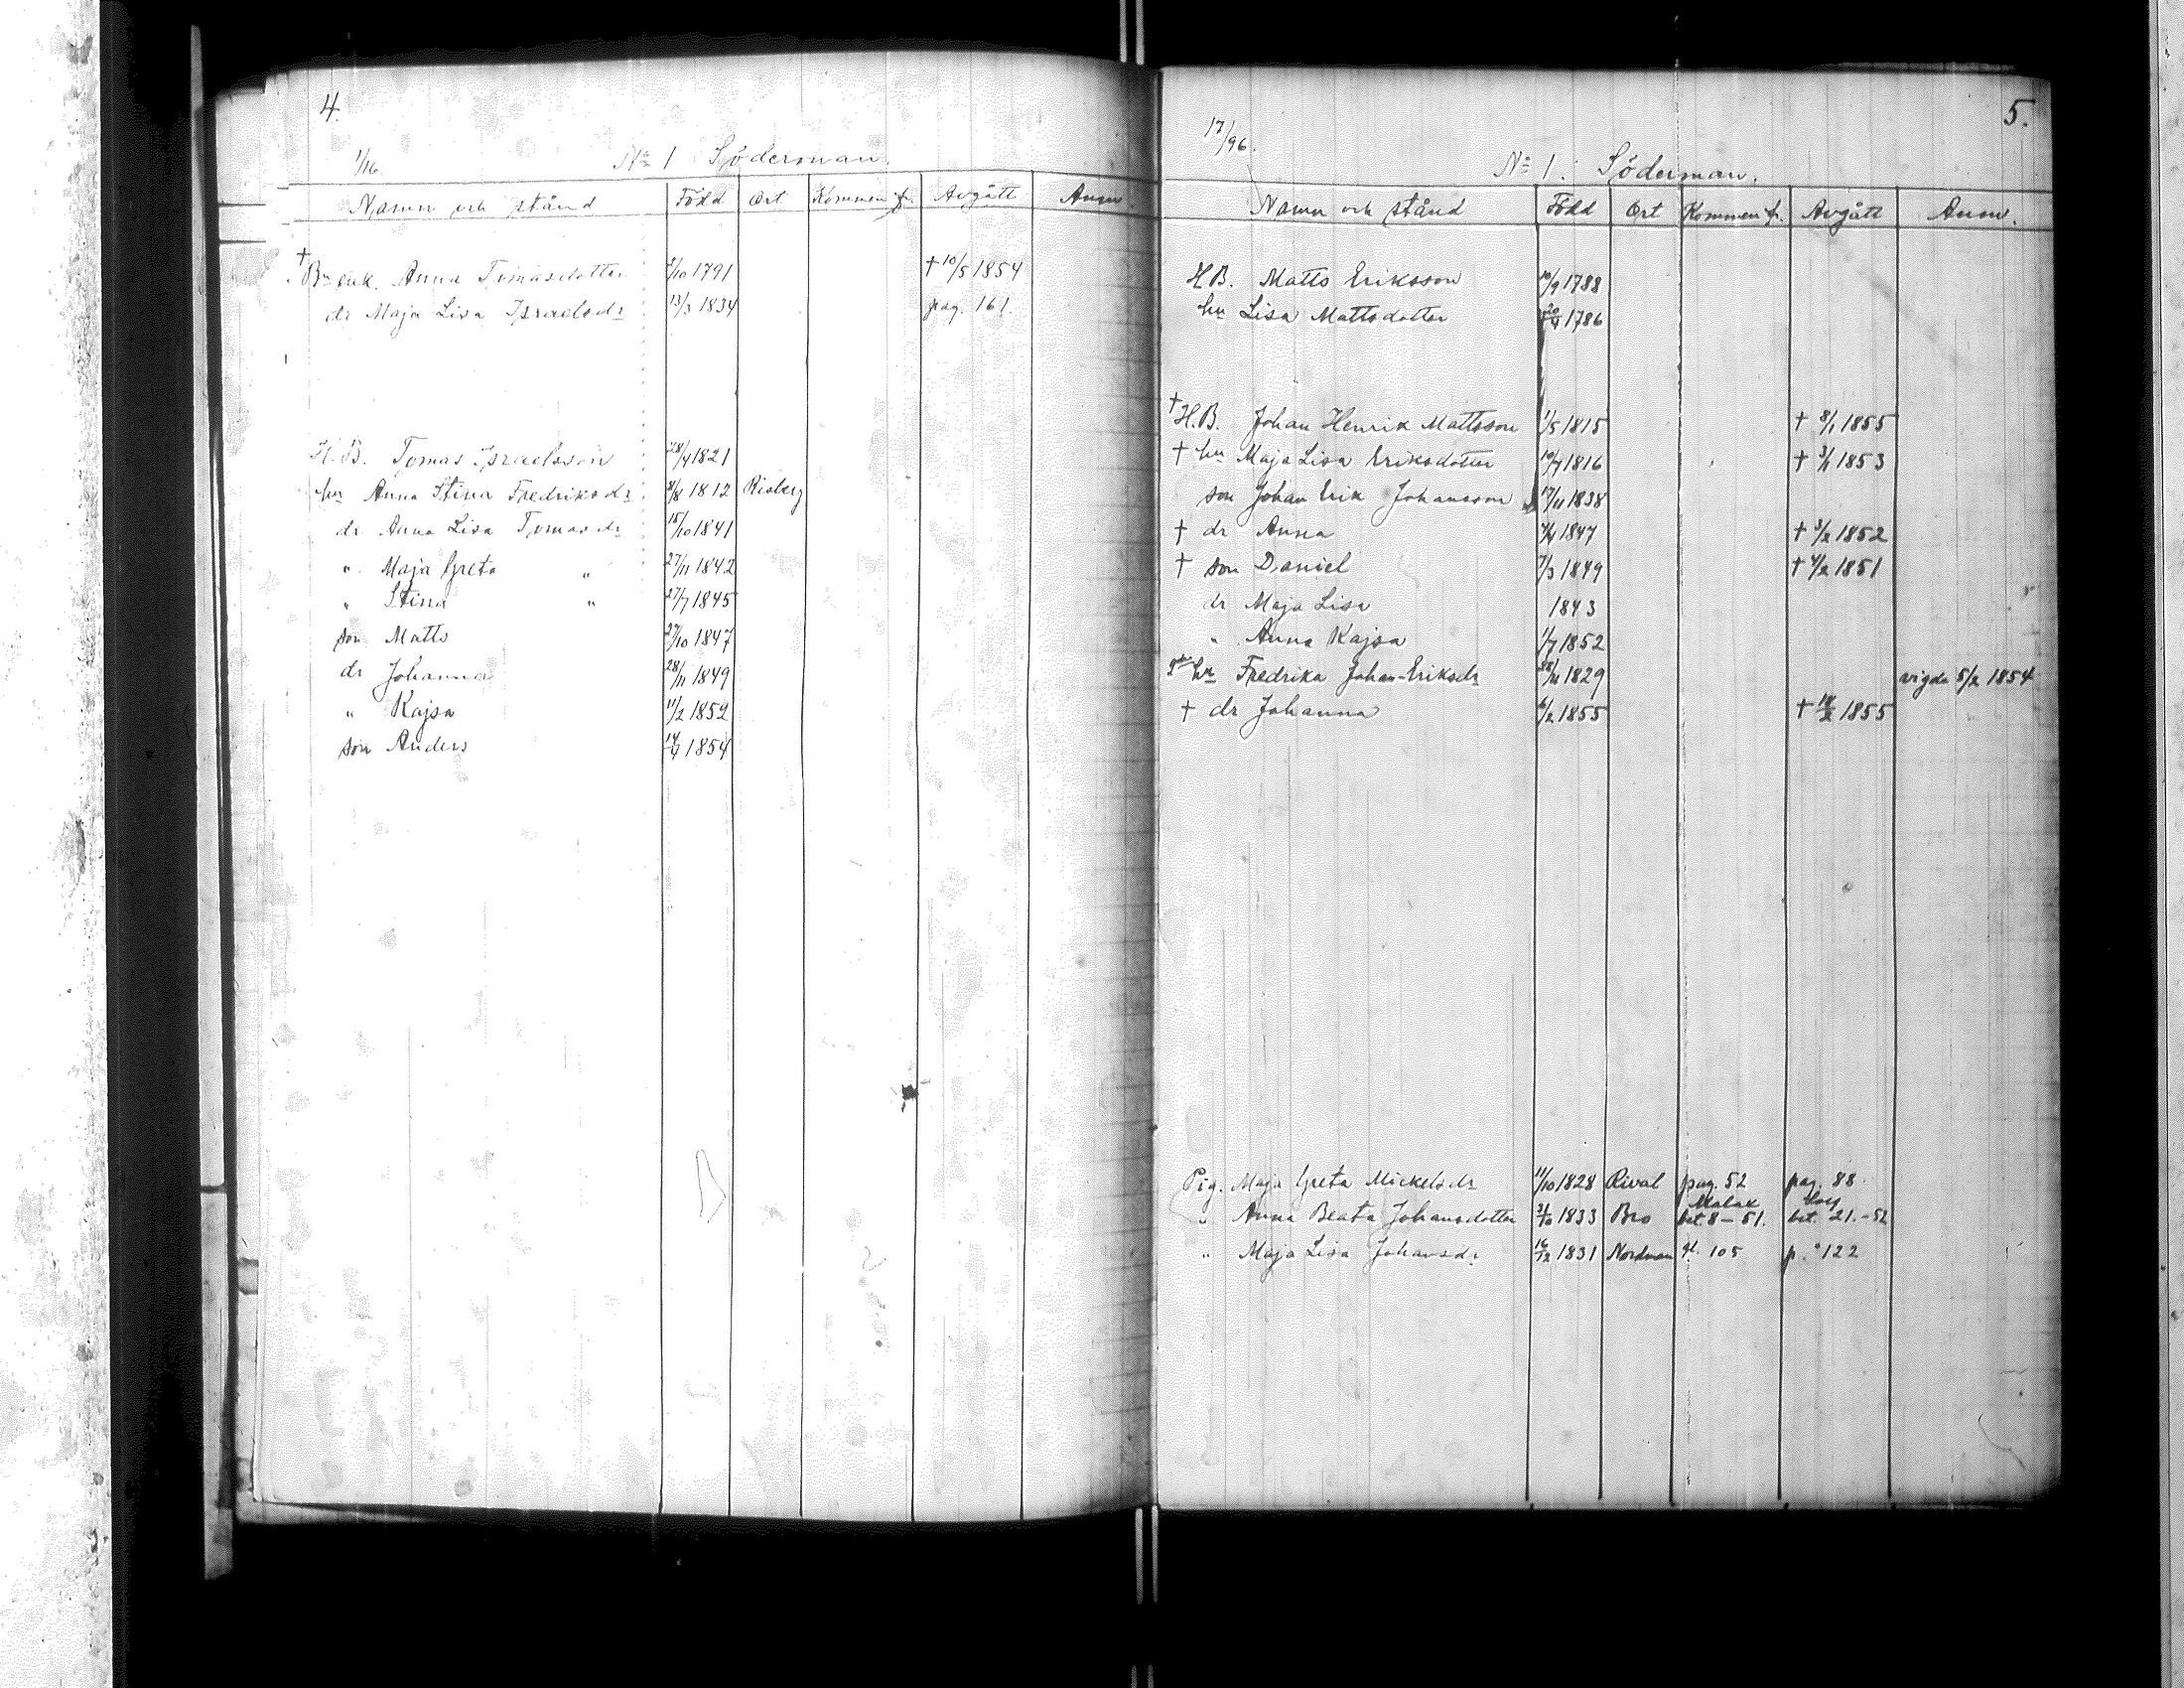 4.
1/16.
No 1 Söderman.
Namn och stånd Född Ort Kommen fr. Avgått Anm
† Bn enk. Anna Tomasdotter 2/10 1791 † 10/5 1854
dr Maja Lisa Israelsdr 13/3 1834 pag. 161.
H.B. Tomas Israelsson 28/4 1821
hu Anna Stina Fredriksdr 8/8 1812 Risberg
dr Anna Lisa Tomasdr 15/10 1841
" Maja Greta " 27/11 1842
" Stina " 27/7 1845
son Matts 27/10 1847
dr Johanna 28/11 1849
" Kajsa 11/2 1852
son Anders 14/4 1854
5.
17/96.
No 1. Söderman.
Namn och stånd Född Ort Kommen fr. Avgått Anm.
H.B. Matts Eriksson 10/9 1788
hu Lisa Mattsdotter 1786
† H.B. Johan Henrik Mattsson 1/5 1815 † 8/1 1855
† hu Maja Lisa Eriksdotter 10/7 1816 † 3/1 1853
son Johan Erik Johansson 17/11 1838
† dr Anna 4/4 1847 † 3/2 1852
† son Daniel 7/3 1849 † 4/2 1851
dr Maja Lisa 1843
" Anna Kajsa 1/7 1852
hu Fredrika Johan-Eriksdr 1829 vigda 5/2 1854
† dr Johanna 6/2 1855 † 18/2 1855
Pig. Maja Greta Mickelsdr 11/10 1828 Rival pag. 52 pag. 88.
" Anna Beata Johansdotter 3/10 1833 Bro Malax bet. 8-51. bet. 21.-52
" Maja Lisa Johansdr 16/12 1831 Nordman 105 p. 122